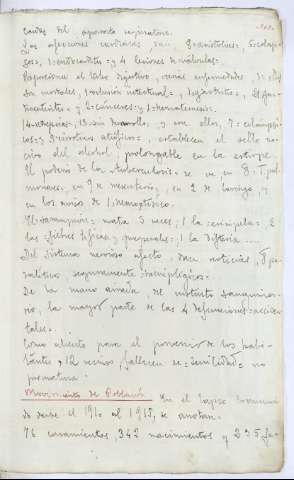 causas del aparato respiratorio.
Las afecciones cardiacas, dan, 2=asistolias=, 5=colapsos=, 1=endocarditis= y 4 lesiones de válvulas=.
Proporciona el tubo digestivo, varias enfermedades,
son mortales, 1=oclusión intestinal=, 1=gastritis=, 2=apendicitis= y 2=cánceres= y 1=hematemesis=.
14=atrepsias=, 13=sin desarrollo=, y con ellos, 7=eclampsias= y 3=vómitos atáxicos=, establecen el sello nocivo del alcohol, prolongable en la estirpe.
El poderío de la =tuberculosis= se ve en 8=T. pulmonares=, en 9 de mesenterio=, en 2 de laringe, y en los niños de 1=hemoptísico=.
El=sarampión= mata 3 veces; 1 la =erisipela=, 2 las =fiebres tíficas=, =puerperales=; 1 la difteria ....
Del sistema nervioso afecto, dan noticias,
paralítico seguramente=hemiplégicos=.
De la mano airada, de instinto sanguinario, la mayor parte de las 4 defunciones=accidentales=.
Como aliento para el porvenir de los habitantes, y 12 vecinos, fallecen de=senilidad= no prematura.
Movimiento de Población. En el lapso comprendido desde el 1910 al 1915, se anotan:
76 casamientos, 342 nacimientos y 235 fa-